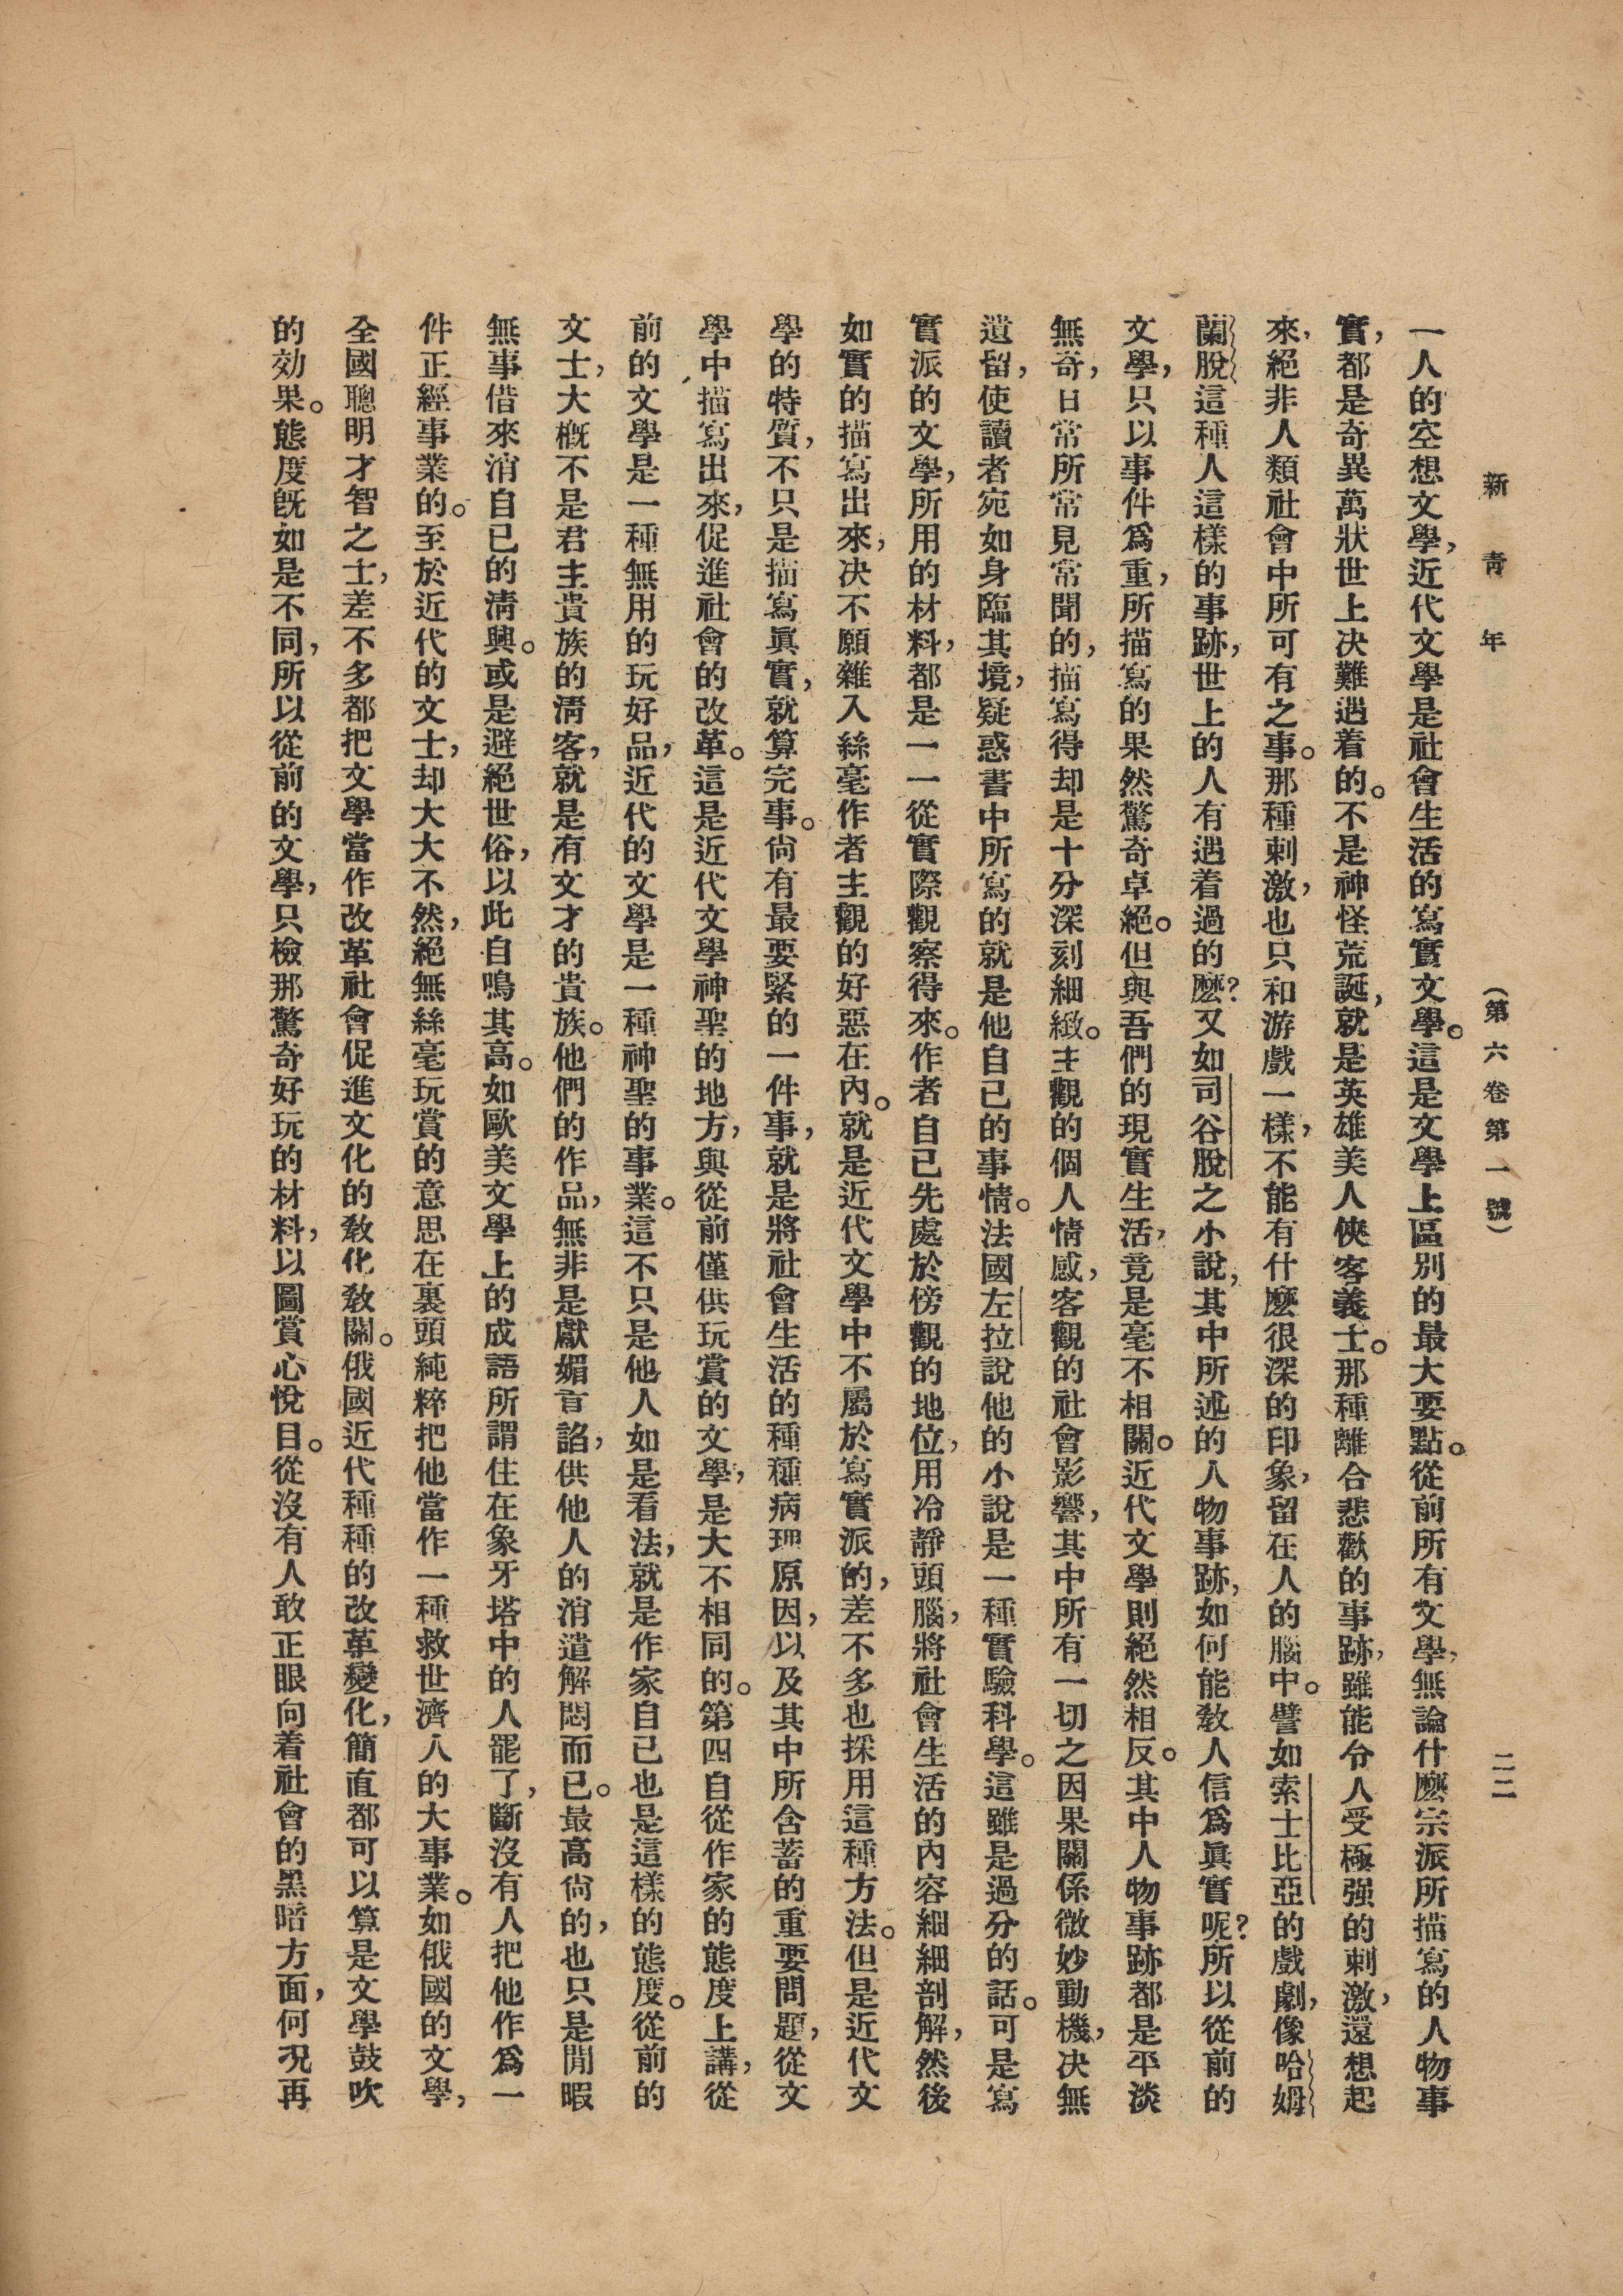 新青年
（第六卷第一號）
二二
一人的空想文學，近代文學是社會生活的寫實文學。這是文學上區別的最大要點。從前所有文學，無論什麽宗派所描寫的人物事
實，都是奇異萬狀世上决難遇着的。不是神怪荒誕，就是英雄美人俠客義士。那種離合悲歡的事跡，雖能令人受極强的刺激，還想起
來，絕非人類社會中所可有之事。那種刺激，也只和游戲一樣，不能有什麽很深的印象，留在人的腦中。譬如索士比亞的戲劇，像哈姆
蘭脫這種人這樣的事跡，世上的人有遇着過的麽？又如司谷脫之小說，其中所述的人物事跡，如何能敎人信爲眞實呢？所以從前的
文學，只以事件爲重，所描寫的果然驚奇卓絕。但與吾們的現實生活，竟是毫不相關。近代文學則絕然相反。其中人物事跡都是平淡
無奇，日常所常見常聞的，描寫得却是十分深刻細緻。主觀的個人情感，客觀的社會影響，其中所有一切之因果關係微妙動機，决無
遺留，使讀者宛如身臨其境，疑惑書中所寫的就是他自已的事情。法國左拉說他的小說是一種實驗科學。這雖是過分的話。可是寫
實派的文學，所用的材料，都是一一從實際觀察得來。作者自已先處於傍觀的地位，用冷靜頭腦，將社會生活的內容細細剖解，然後
如實的描寫出來，决不願雜入絲毫作者主觀的好惡在內。就是近代文學中不屬於寫實派的，差不多也採用這種方法。但是近代文
學的特質，不只是描寫眞實，就算完事。尙有最要緊的一件事，就是將社會生活的種種病理原因，以及其中所含蓄的重要問題，從文
學中描寫出來，促進社會的改革。這是近代文學神聖的地方，與從前僅供玩賞的文學，是大不相同的。第四自從作家的態度上講，從
前的文學是一種無用的玩好品，近代的文學是一種神聖的事業。這不只是他人如是看法，就是作家自已也是這樣的態度。從前的
文士，大槪不是君主貴族的淸客，就是有文才的貴族。他們的作品，無非是獻媚貢諂，供他人的消遣解悶而已。最高尙的，也只是閒暇
無事借來消自已的淸興。或是避絕世俗，以此自鳴其高。如歐美文學上的成語所謂住在象牙塔中的人罷了，斷沒有人把他作爲一
件正經事業的。至於近代的文士，却大大不然，絕無絲毫玩賞的意思在裏頭純粹把他當作一種救世濟人的大事業。如俄國的文學，
全國聰明才智之士，差不多都把文學當作改革社會促進文化的敎化敎關。俄國近代種種的改革變化，簡直都可以算是文學鼓吹
的効果。態度旣如是不同，所以從前的文學，只檢那驚奇好玩的材料，以圖賞心悅目。從沒有人敢正眼向着社會的黑暗方面，何况再